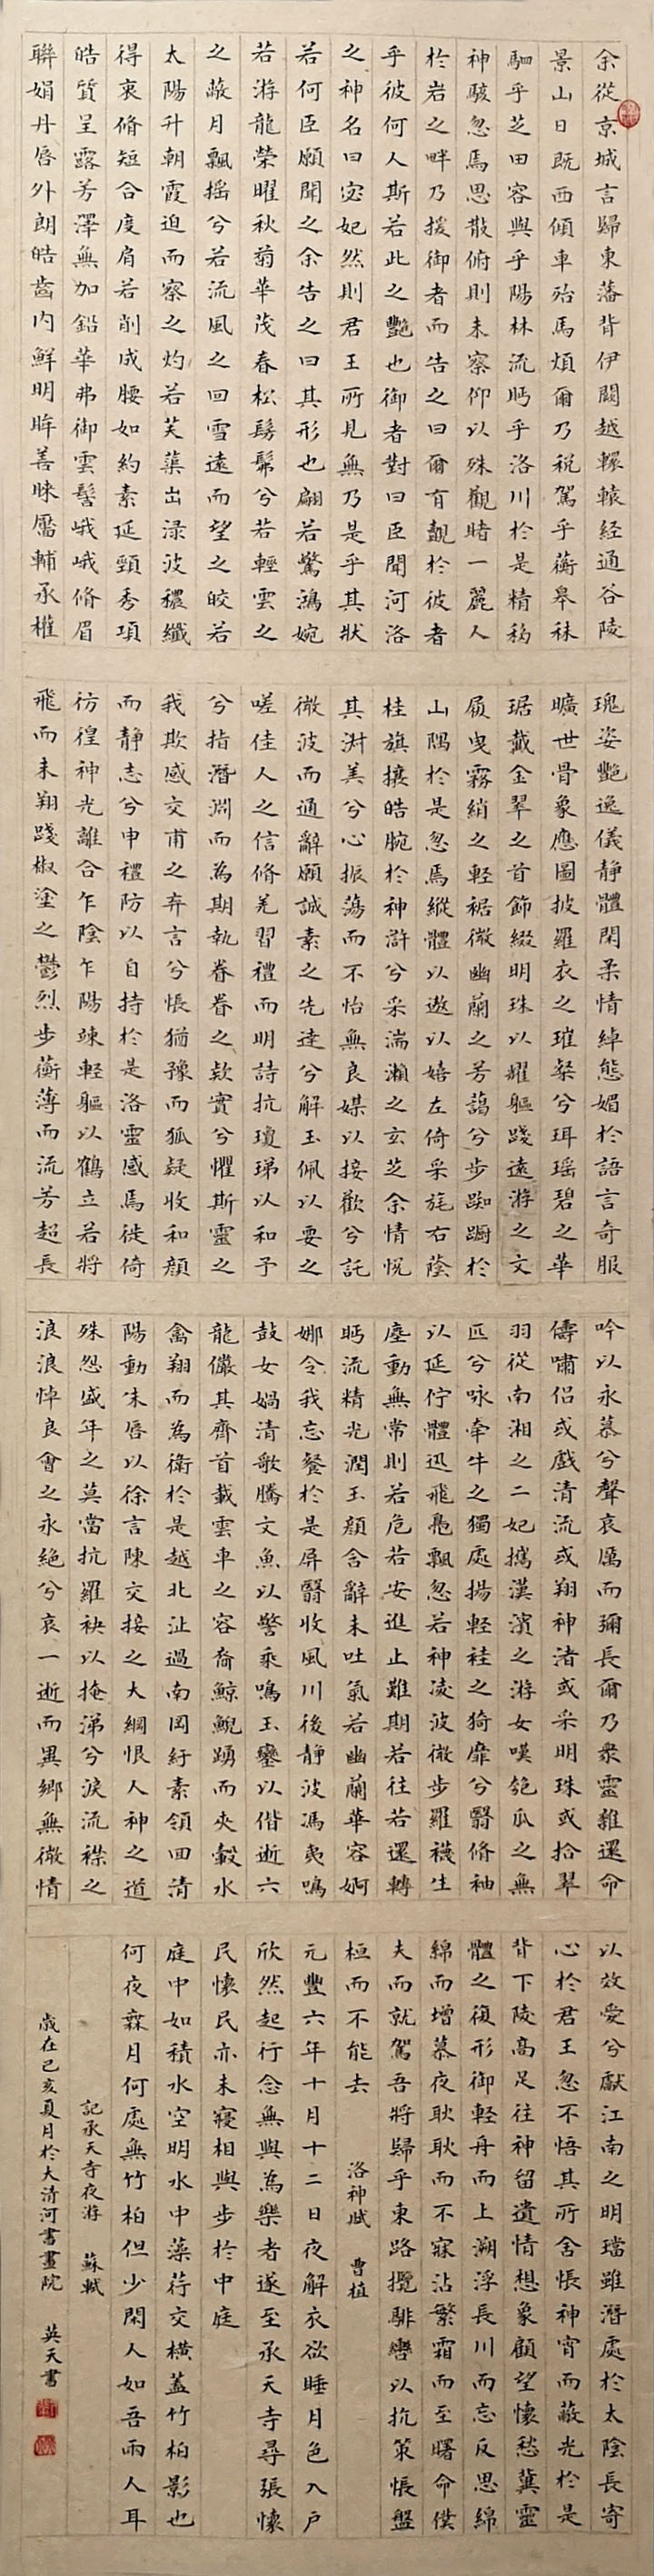 余從京城言歸東藩背伊闕越轘轅経通谷陵
景山日既西傾車殆馬煩爾乃稅駕乎蘅皋秣
駟乎芝田容與乎陽林流眄乎洛川於是精移
神駭忽焉思散俯則未察仰以殊觀睹一麗人
於岩之畔乃援御者而告之曰爾有覿於彼者
乎彼何人斯若此之艷也御者對曰臣聞河洛
之神名曰宓妃然則君王所見無乃是乎其狀
若何臣願聞之余告之曰其形也翩若驚鴻婉
若游龍榮曜秋菊華茂春松髣髴兮若輕雲之
之蔽月飄搖兮若流風之回雪遠而望之皎若
太陽升朝霞迫而察之灼若芙蕖出淥波穠纖
得衷脩短合度肩若削成腰如約素延頸秀項
皓質呈露芳澤無加鉛華弗御雲髻峨峨脩眉
聯娟丹唇外朗皓齒內鮮明眸善睞靨輔承權
瑰姿艷逸儀静體閑柔情綽態媚於語言奇服
曠世骨象應圖披羅衣之璀粲兮珥瑤碧之華
琚戴金翠之首飾綴明珠以耀軀踐遠游之文
履曳霧綃之輕裾微幽蘭之芳藹兮步踟躕於
山隅於是忽焉縱體以遨以嬉左倚采旄右蔭
桂旗攘皓腕於神滸兮采湍瀨之玄芝余情悅
其淑美兮心振蕩而不怡無良媒以接歡兮託
微波而通辭願誠素之先達兮解玉佩以要之
嗟佳人之信脩羌習禮而明詩抗瓊珶以和予
兮指潛淵而為期執眷眷之款實兮懼斯靈之
我欺感交甫之弃言兮悵猶豫而狐疑收和顏
而静志兮申禮防以自持於是洛靈感焉徙倚
彷徨神光離合乍陰乍陽竦輕軀以鶴立若將
飛而未翔踐椒塗之鬱烈步蘅薄而流芳超長
吟以永慕兮聲哀厲而彌長爾乃衆靈雜遝命
儔嘯侶或戲清流或翔神渚或采明珠或拾翠
羽從南湘之二妃攜漢濱之游女嘆匏瓜之無
匹兮咏牽牛之獨處揚輕袿之猗靡兮翳脩袖
以延佇體迅飛鳧飄忽若神凌波微步羅襪生
塵動無常則若危若安進止難期若往若還轉
眄流精光潤玉顏含辭未吐氣若幽蘭華容婀
娜令我忘餐於是屏翳收風川後静波馮夷鳴
鼓女媧清歌騰文魚以警乘鳴玉鑾以偕逝六
龍儼其齊首載雲車之容裔鯨鯢踴而夾轂水
禽翔而為衛於是越北沚過南岡紆素領回清
陽動朱唇以徐言陳交接之大綱恨人神之道
殊怨盛年之莫當抗羅袂以掩涕兮淚流襟之
浪浪悼良會之永絕兮哀一逝而異鄉無微情
以效愛兮獻江南之明璫雖潛處於太陰長寄
心於君王忽不悟其所舍悵神宵而蔽光於是
背下陵高足往神留遺情想象顧望懷愁冀靈
體之復形御輕舟而上溯浮長川而忘反思綿
綿而增慕夜耿耿而不寐沾繁霜而至曙命僕
夫而就駕吾將歸乎東路攬騑轡以抗策悵盤
桓而不能去 洛神賦 曹植
元豐六年十月十二日夜解衣欲睡月色入戶
欣然起行念無與為樂者遂至承天寺尋張懷
民懷民亦未寢相與步於中庭
庭中如積水空明水中藻荇交橫蓋竹柏影也
何夜無月何處無竹柏但少閑人如吾兩人耳
記承天寺夜游 蘇軾
歲在己亥夏月於大清河書畫院 英天書